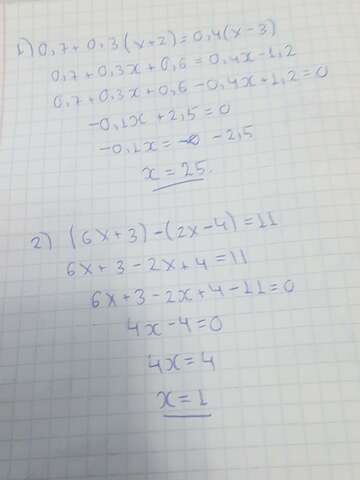 1) 0,7 + 0,3 (x+2) = 0,4 (x-3)
0,7 + 0,3x + 0,6 = 0,4x - 1,2
0,7 + 0,3x + 0,6 - 0,4x + 1,2 = 0
-0,1x + 2,5 = 0
-0,1x = - 2,5
x = 25.
2) (6x+3) - (2x-4) = 11
6x + 3 - 2x + 4 = 11
6x + 3 - 2x + 4 - 11 = 0
4x - 4 = 0
4x = 4
x = 1